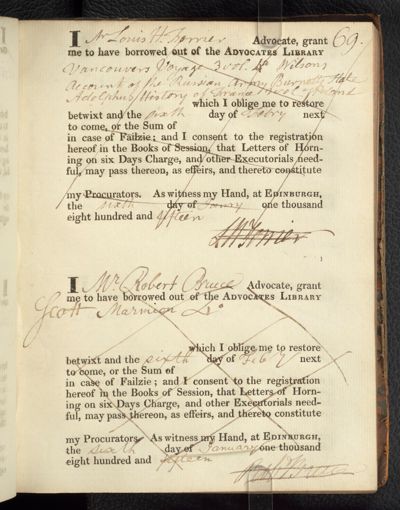 69.
I Mr Louis H Ferrier Advocate, grant
me to have borrowed out of the Advocates Library
Vancouvers Voyage 3 vol. 4o Wilsons
Account of the Russian Army Burnetts
Adolphus History of France
which I oblige me to restore
betwixt and the sixth day of Febry next
to come, or the Sum of
in case of Failzie; and I consent to the registration
hereof in the Books of Session, that Letters of Horn-
ing on six Days Charge, and other Executorials need-
ful, may pass thereon, as effeirs, and thereto constitute
my Procurators. As witness my Hand, at Edinburgh,
the sixth day of Janry one thousand
eight hundred and fifteen
LHFerrier
I Mr. Robert Bruce Advocate, grant
me to have borrowed out of the Advocates Library
Scott Marmion 4o
which I oblige me to restore
betwixt and the sixth day of Feby next
to come, or the Sum of
in case of Failzie; and I consent to the registration
hereof in the Books of Session, that Letters of Horn-
ing on six Days Charge, and other Executorials need-
ful, may pass thereon, as effeirs, and thereto constitute
my Procurators. As witness my Hand, at Edinburgh,
the sixth day of January one thousand
eight hundred and fifteen
Bruce